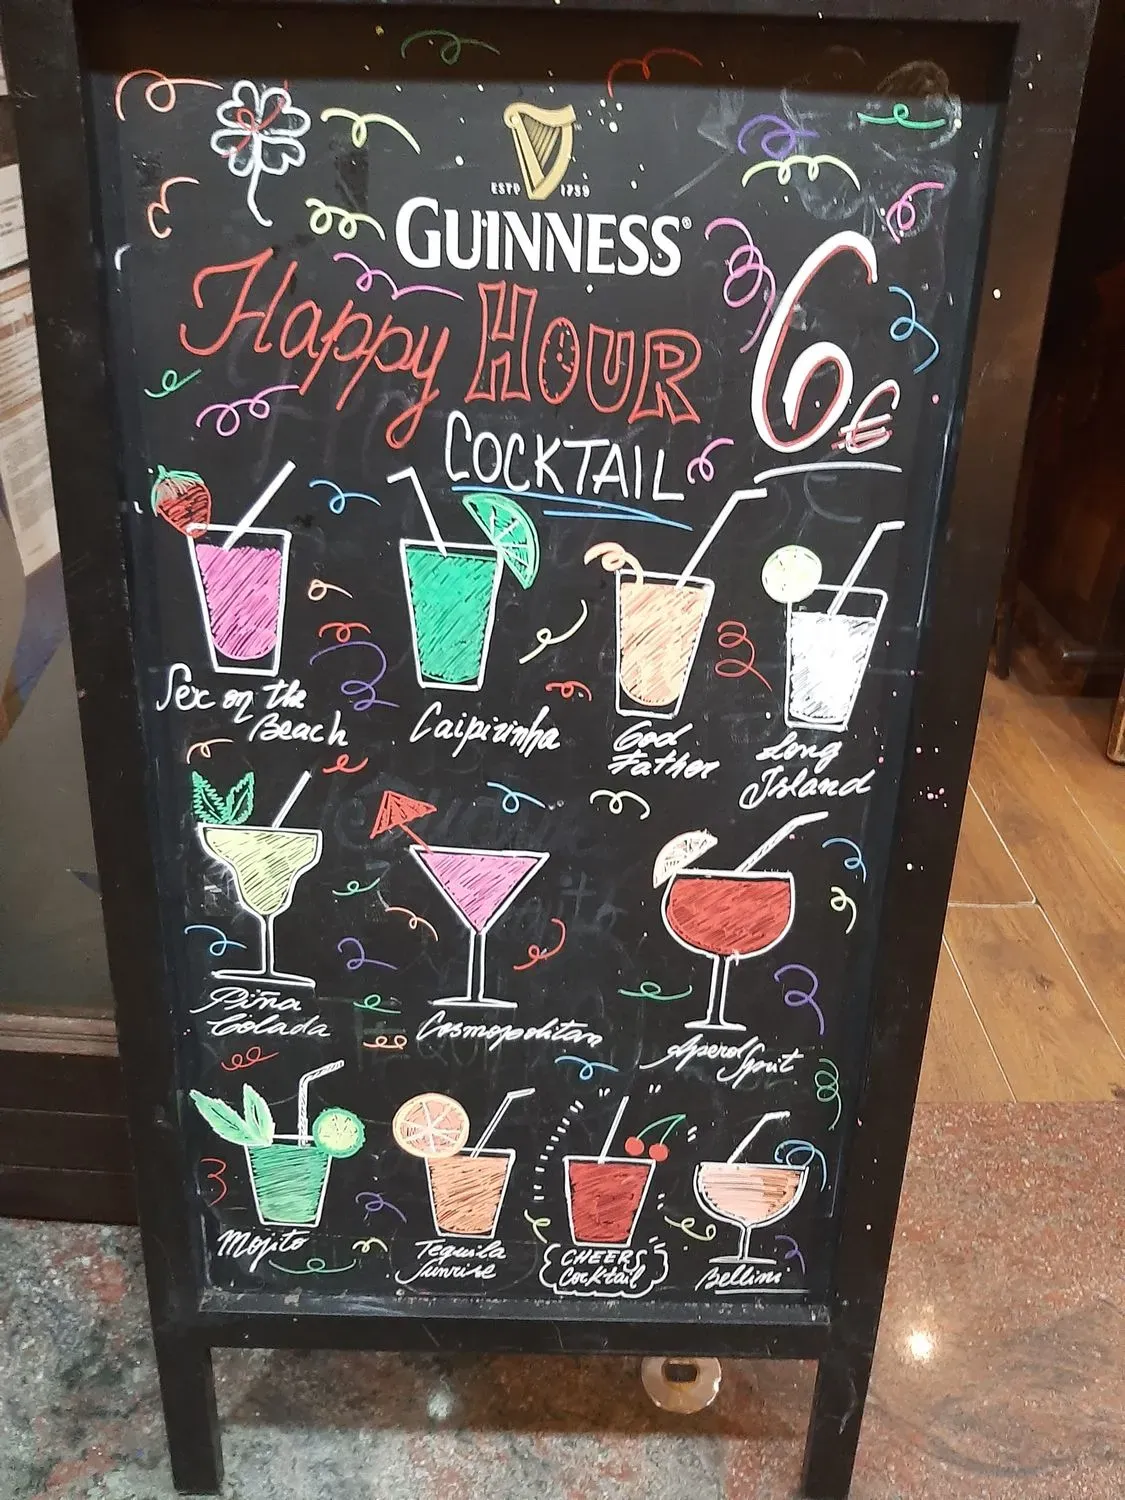 ESTD 1759
GUINNESS®
Happy HOUR
6€
COCKTAIL
Sex on the
Beach
Caipirinha
God
Father
Long
Island
Piña
Colada
Cosmopolitan
Aperol Sprit
Mojito
Tequila
Sunrise
CHEERS
Cocktail
Bellini